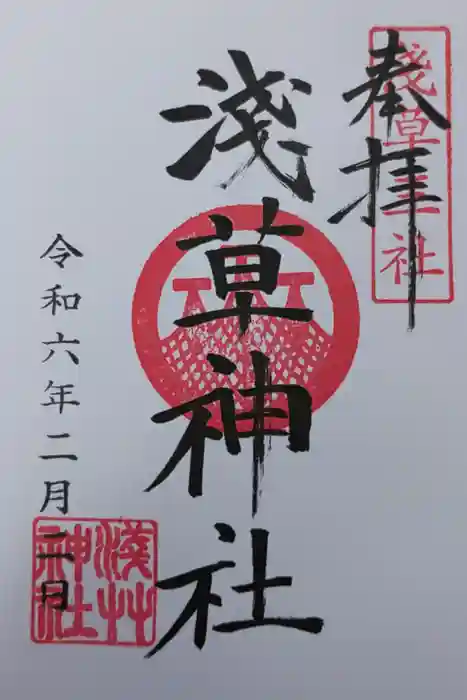 奉拝
淺草三社
淺草神社
令和六年二月二日
淺艸
神社